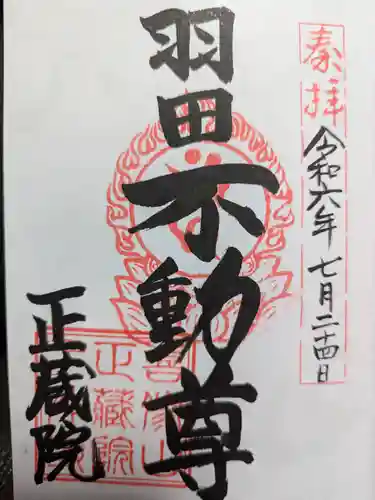 奉拝
令和六年七月二十四日
羽田不動尊
正蔵院
正蔵院